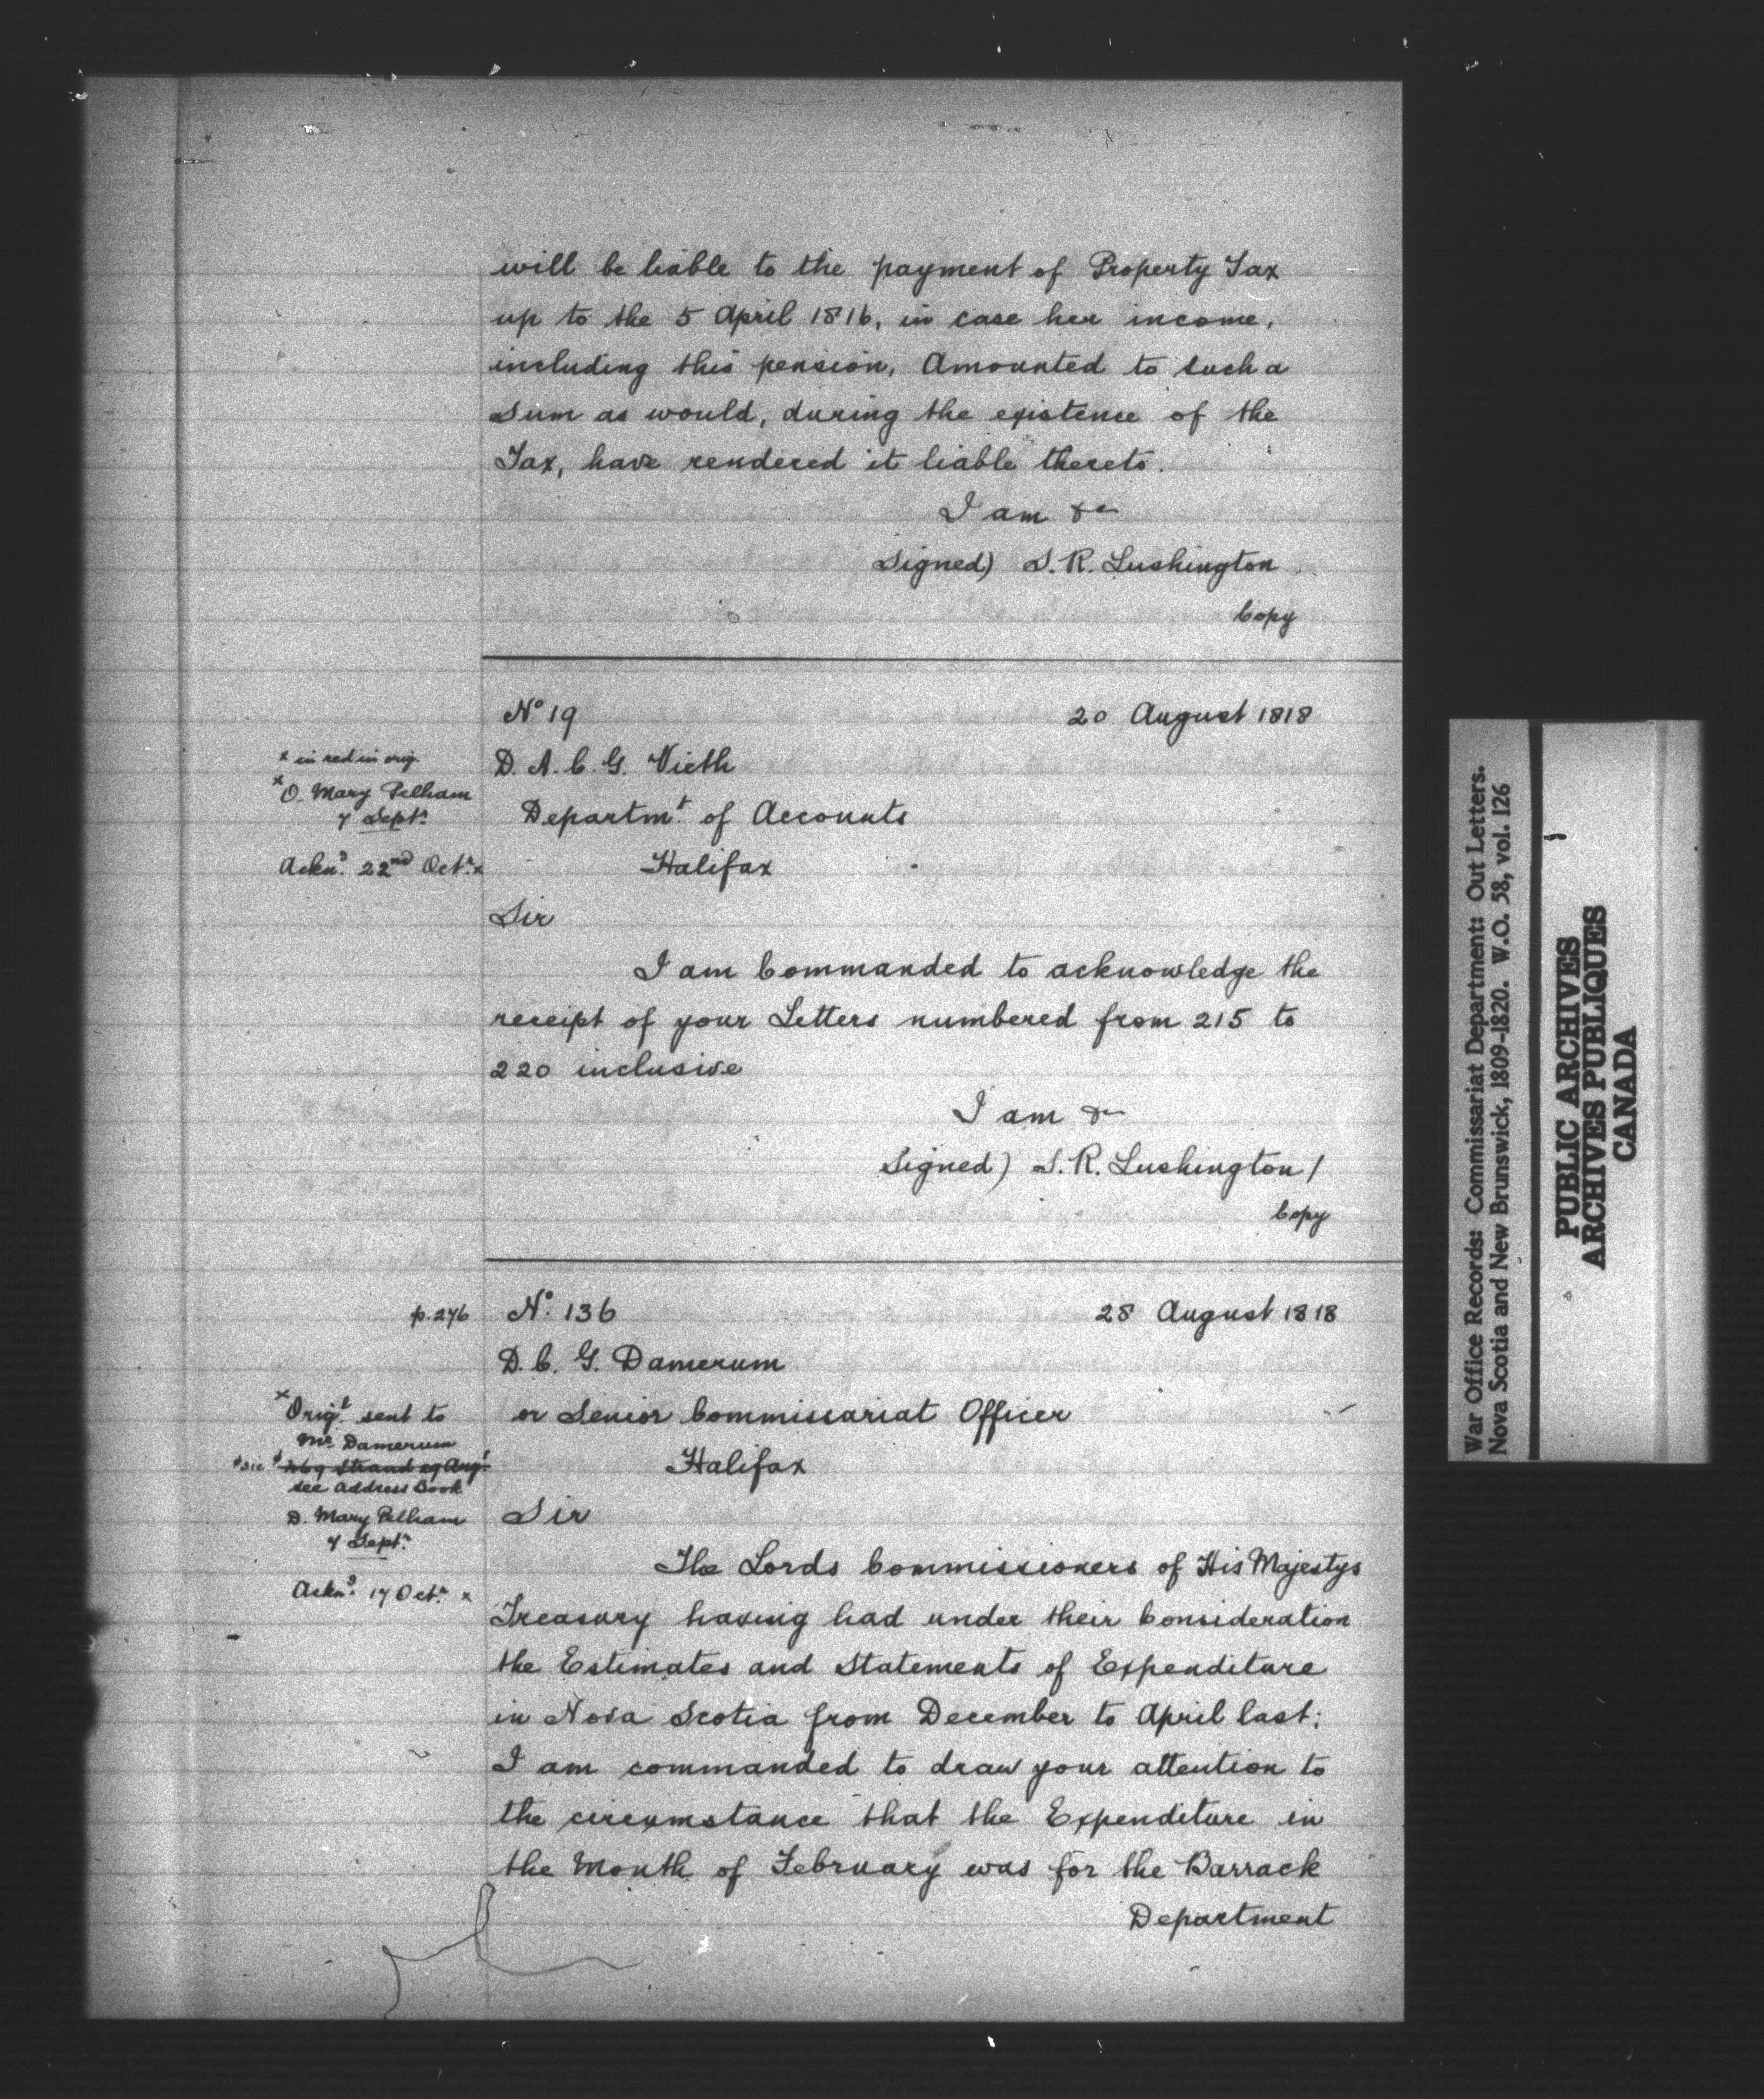 will be liable to the payment of Property Tax
up to the 5 April 1816, in case her income,
including this pension, Amounted to such a
Sum as would, during the existence of the
Tax, have rendered it liable thereto.
I am &c
Signed) S. R. Lushington
Copy
Nº 19 20 August 1818
x in red in orig.
D. A. C. G. Vieth
x O. Mary Pelham
7 Septr.
Departmt. of Accounts
Ackd. 22nd Octr. x
Halifax
Sir
I am Commanded to acknowledge the
receipt of your Letters numbered from 215 to
220 inclusive
I am &c
Signed) S. R. Lushington /
Copy
p. 276
Nº. 136 28 August 1818
D. C. G. Damerum
or Senior Commissariat Officer
Halifax
x Origl. sent to
Mr. Damerum
# sic # 269 Strand 29 Augt.
see Address Book
D. Mary Pelham
7 Septr.
Ackd. 17 Octr. x
Sir
The Lords Commissioners of His Majestys
Treasury having had under their Consideration
the Estimates and Statements of Expenditure
in Nova Scotia from December to April last;
I am commanded to draw your attention to
the circumstance that the Expenditure in
the Month of February was for the Barrack
Department
War Office Records: Commissariat Department: Out Letters.
Nova Scotia and New Brunswick, 1809-1820. W.O. 58, vol. 126
PUBLIC ARCHIVES
ARCHIVES PUBLIQUES
CANADA